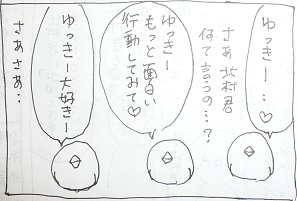 ゆっきー…♡
さあ北村君
何て言うの…?
ゆっきー
もっと面白い
行動してみて♡
ゆっきー大好きー
さあさあ…